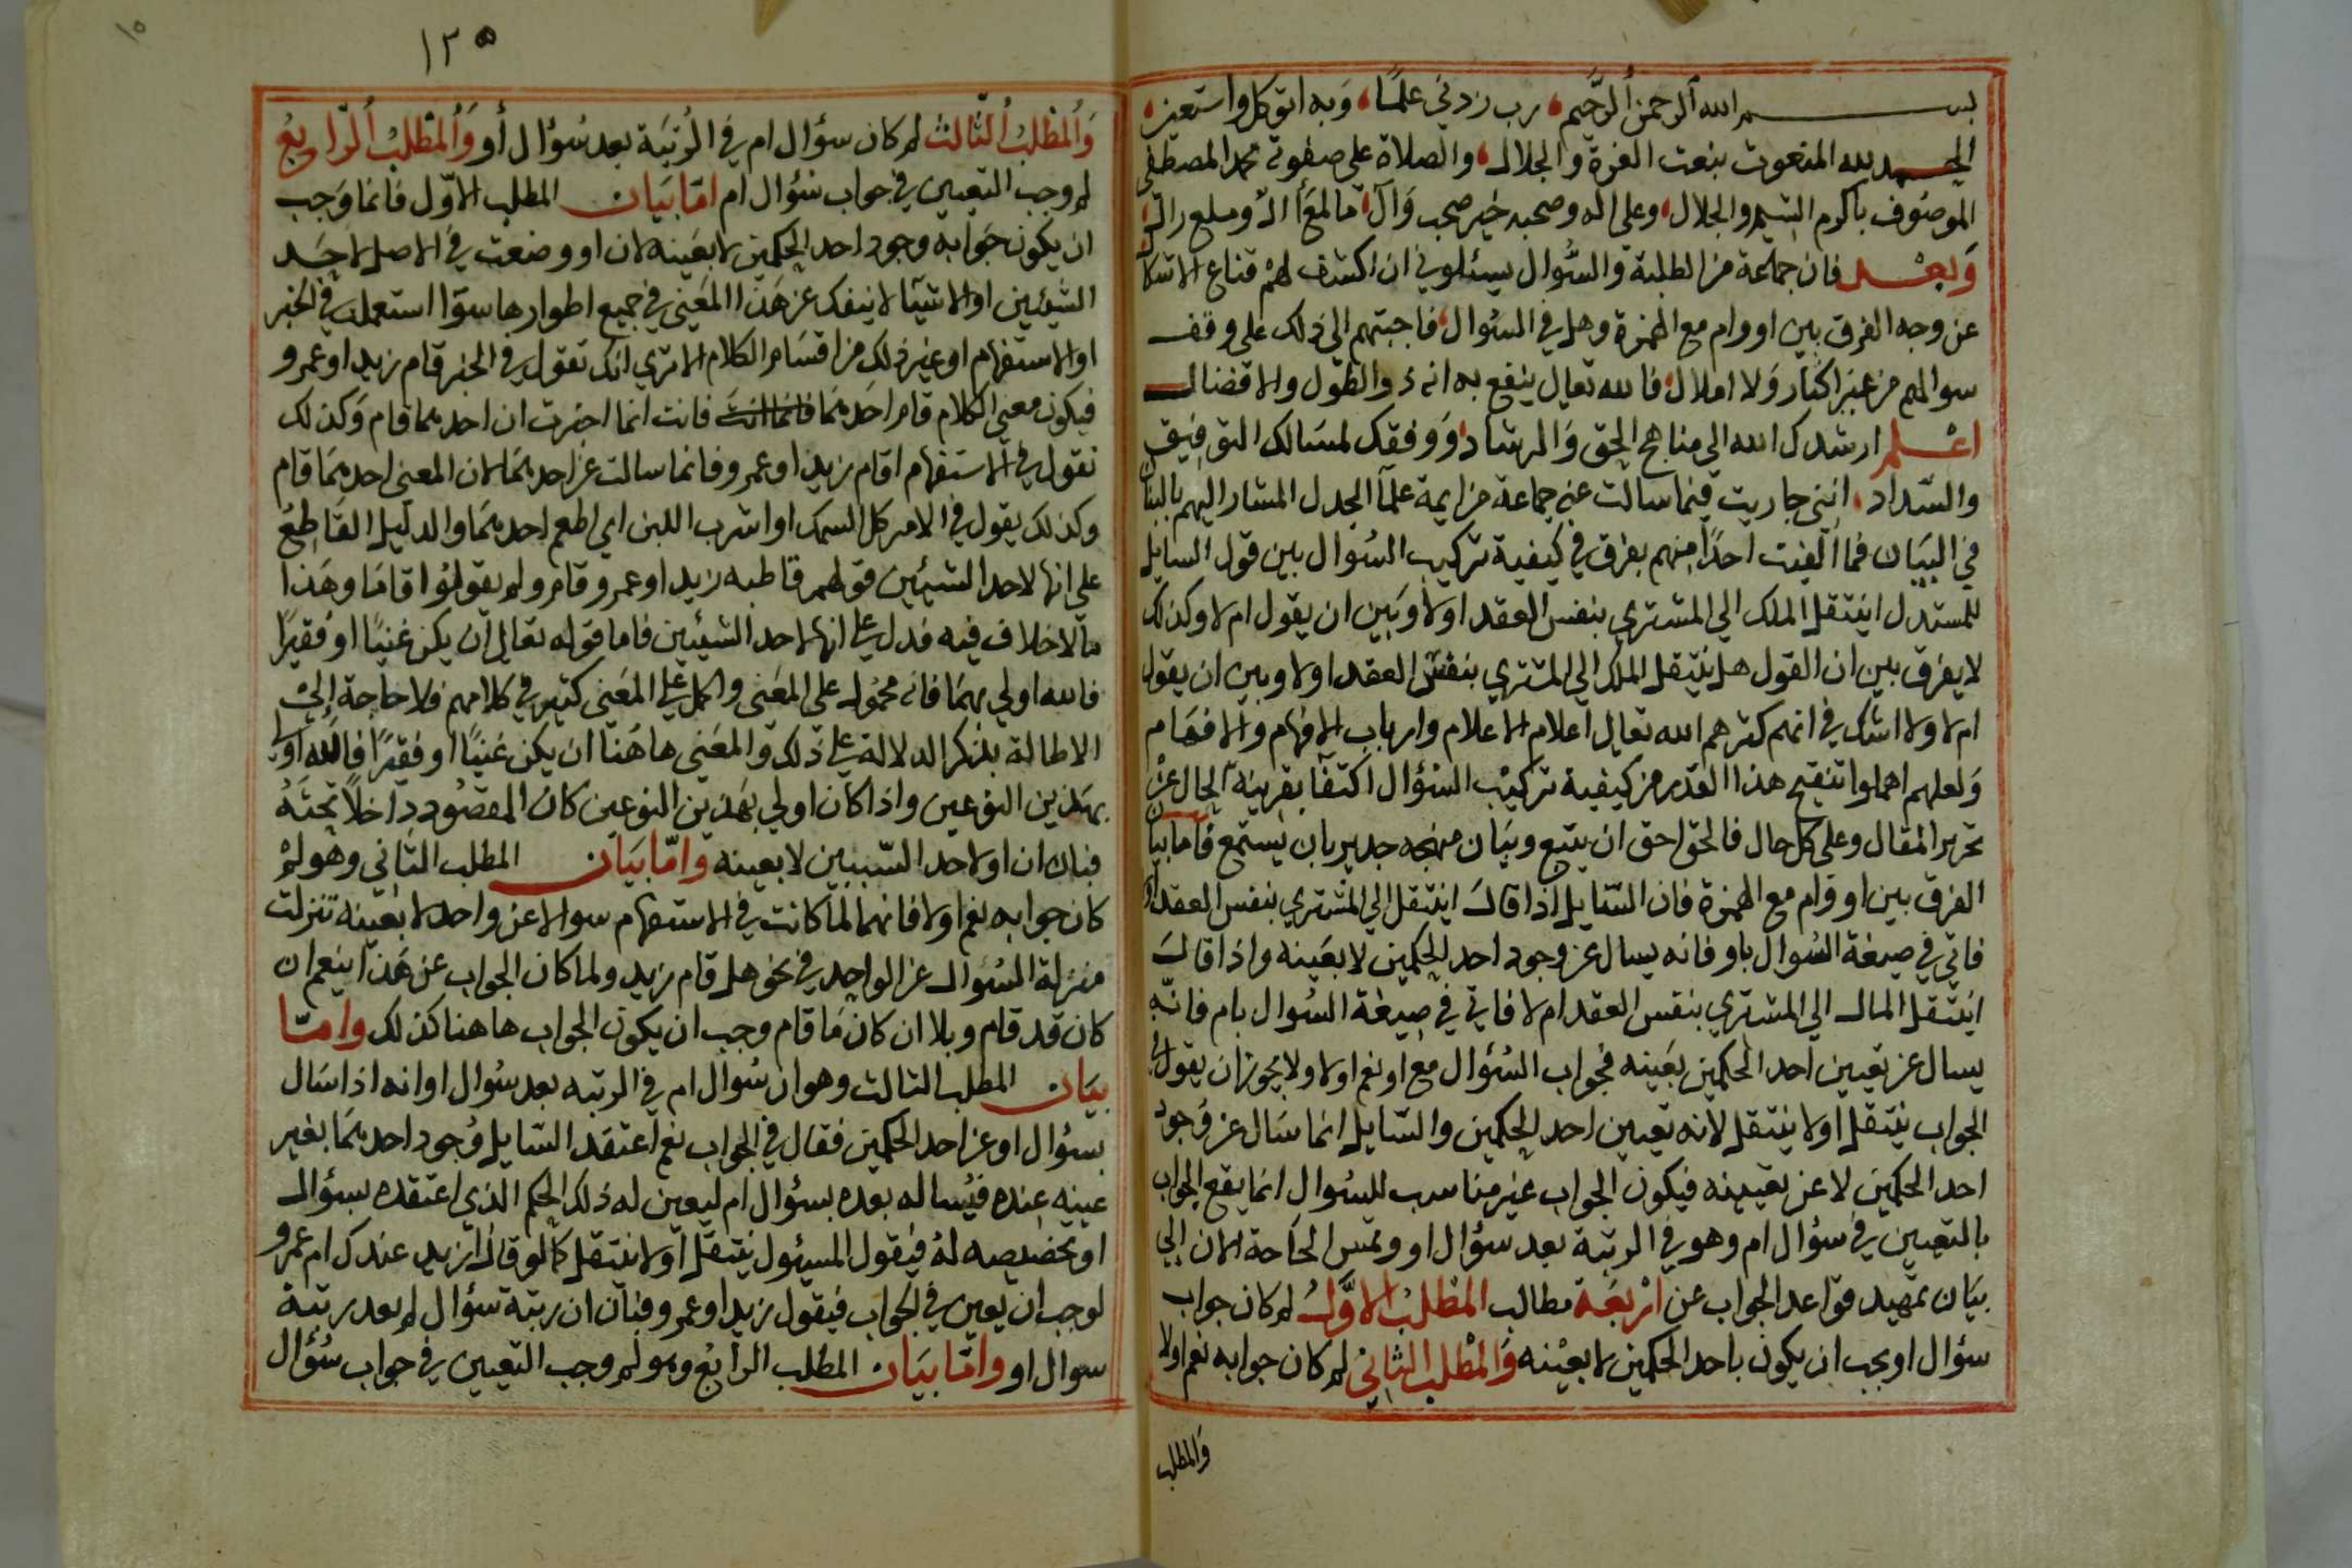 بسم الله الرحمن الرحيم، رب زدني علما، وبه اتوكل واستعين،
الحمد لله المنعوت بنعت العزة والجلال، والصلاة على صفوته محمد المصطفى
الموصوف باكرم الشيم والجلال، وعلى اله وصحبه خير صحب وآل، ما لمع آل ولمع رال،
وبعد فان جماعة من الطلبة والسؤال يسئلوني ان اكشف لهم قناع الاشكال
عن وجه الفرق بين او وام مع الهمزة وهل في السؤال، فاجبتهم الى ذلك على وقف
سوالهم من غير اكثار ولا املال، فالله تعالى ينفع به انه ذو الطول والافضال
اعلم ارشدك الله الى مناهج الحق والرشاد، ووفقك لمسالك التوفيق
والسداد، انني جاريت فيما سالت عنه جماعة من ايمة علمآ الجدل المشار اليهم بالبنان
في البيان فما الفيت احدا منهم يفرق في كيفية تركيب السؤال بين قول السايل
للمستدل اينتقل الملك الى المشتري بنفس العقد اولا وبين ان يقول ام لا وكذلك
لا يفرق بين ان القول هل ينتقل الملك الى المشتري بنفس العقد اولا وبين ان يقول
ام لا ولا اشك في انهم كثرهم الله تعالى اعلام الاعلام وارباب الافهام والافهام
ولعلهم اهملوا تنقيح هذا القدر من كيفية تركيب السؤال اكتفآ بقرينة الحال عن
تحرير المقال وعلى كل حال فالحق احق ان يتبع وبيان منهجه جدير بان يستمع فاما بيان
الفرق بين او وام مع الهمزة فان السايل اذا قال اينتقل الى المشتري بنفس العقد او لا
فاتى في صيغة السؤال باو فانه يسال عن وجود احد الحكمين لا بعينه واذا قال
اينتقل المال الى المشتري بنفس العقد ام لا فاتى في صيغة السؤال بام فانه
يسال عن تعيين احد الحكمين بعينه فجواب السؤال مع او نعم اولا ولا يجوز ان يقول في
الجواب ينتقل اولا ينتقل لانه تعيين احد الحكمين والسايل انما سال عن وجود
احد الحكمين لا عن تعيينه فيكون الجواب غير مناسب للسؤال انما يقع الجواب
بالتعيين في سؤال ام وهو في الرتبة بعد سؤال او وتمس الحاجة الان الى
بيان تمهيد قواعد الجواب عن اربعة مطالب المطلب الاول لم كان جواب
سؤال او يجب ان يكون باحد الحكمين لا بعينه والمطلب الثاني لم كان جوابه نعم اولا
والمطلب
١٢٥
١٥
والمطلب الثالث لم كان سؤال ام في الرتبة بعد سؤال أو والمطلب الرابع
لم وجب التعيين في جواب سؤال ام اما بيان المطلب الاول فانما وجب
ان يكون جوابه وجود احد الحكمين لا بعينه لان او وضعت في الاصل لاحد
الشيئين او الاشيآ لا ينفك عن هذا المعنى في جميع اطوارها سوآ استعملت في الخبر
او الاستفهام او غير ذلك من اقسام الكلام الا ترى انك تقول في الخبر قام زيد او عمرو
فيكون معنى الكلام قام احدهما فانما انت فانت انما اخبرت ان احدهما قام وكذلك
تقول في الاستفهام اقام زيد او عمرو فانما سالت عن احدهما لان المعنى احدهما قام
وكذلك يقول في الامر كل السمك او اشرب اللبن اي اطعم احدهما والدليل القاطع
على انها لاحد الشيئين قولهم قاطبه زيد او عمرو قام ولم يقولوا قاما وهذا
مالا خلاف فيه فدل على انها لاحد الشيئين فاما قوله تعالى ان يكن غنيا او فقيرا
فالله اولى بهما فانه محمول على المعنى والحمل على المعنى كثير في كلامهم فلا حاجة إلى
الاطالة بذكر الدلالة على ذلك والمعنى هاهنا ان يكن غنيا او فقيرا فالله اولى
بهذين النوعين واذا كان اولى بهذين النوعين كان المقصود داخلا تحته
فبان ان او لاحد السببين لا بعينه واما بيان المطلب الثاني وهو لم
كان جوابه نعم اولا فانها لما كانت في الاستفهام سوالا عن واحد لا بعينه تنزلت
منزلة السؤال عن الواحد في نحو هل قام زيد ولما كان الجواب عن هذا بنعم ان
كان قد قام وبلا ان كان ما قام وجب ان يكون الجواب هاهنا كذلك واما
بيان المطلب الثالث وهو ان سؤال ام في الرتبه بعد سؤال او انه اذا سال
بسؤال او عن احد الحكمين فقال في الجواب نعم اعتقد السايل وجود احدهما بغير
عينه عنده فيساله بعده بسؤال ام ليعين له ذلك الحكم الذي اعتقده بسؤال
او بحضيصه له فيقول المسئول ينتقل او لا ينتقل كما لو قال ازيد عندك ام عمرو
لوجب ان يعين في الجواب فيقول زيد او عمرو فبان ان رتبة سؤال لم بعد رتبة
سوال او واما بيان المطلب الرابع وهو لم وجب التعيين في جواب سؤال